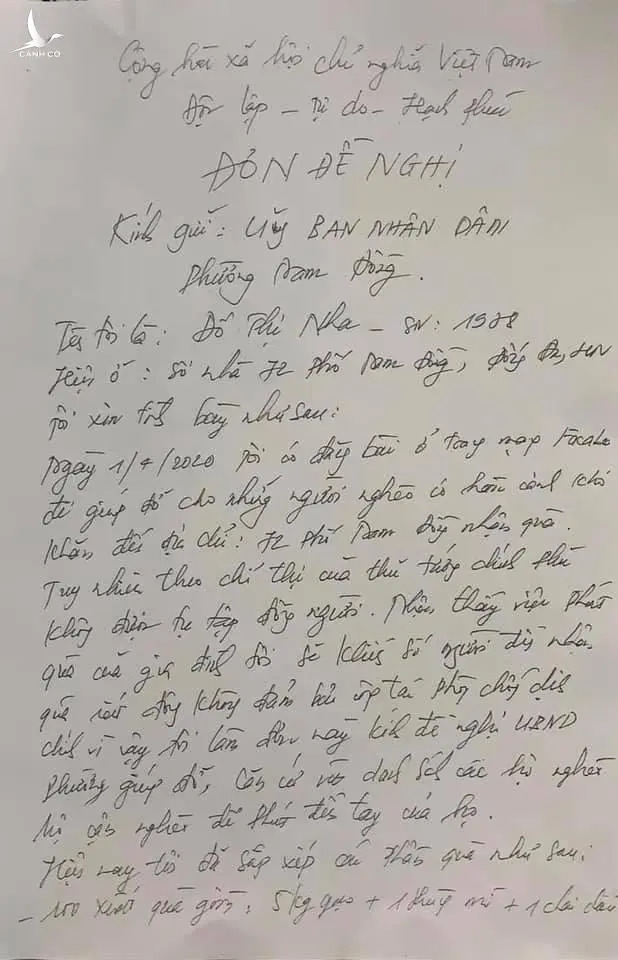 CÁNH CÒ
Cộng hòa xã hội chủ nghĩa Việt Nam
Độc lập - Tự do - Hạnh phúc
ĐƠN ĐỀ NGHỊ
Kính gửi: Uỷ BAN NHÂN DÂN
Phường Nam Đồng.
Tên tôi là: Đỗ Thị Nha - SN: 1978
Hiện ở: Số nhà 72 phố Nam Đồng, Đống Đa, HN
Tôi xin trình bày như sau:
Ngày 1/4/2020 tôi có đăng bài ở trang mạng
để giúp đỡ cho những người nghèo có hoàn cảnh khó
khăn đến địa chỉ: 72 phố Nam Đồng nhận quà.
Tuy nhiên theo chỉ thị của thủ tướng chính phủ
không được tụ tập đông người. Nhận thấy việc phát
quà của gia đình tôi sẽ khiến số người đến nhận
quà rất đông không đảm bảo công tác phòng chống dịch
chính vì vậy tôi làm đơn này kính đề nghị UBND
Phường giúp đỡ, căn cứ vào danh sách các hộ nghèo
hộ cận nghèo để phát đến tay của họ.
Hiện nay tôi đã sắp xếp các phần quà như sau:
- 100 xuất quà gồm: 5kg gạo + 1 thùng mì + 1 chai dầu